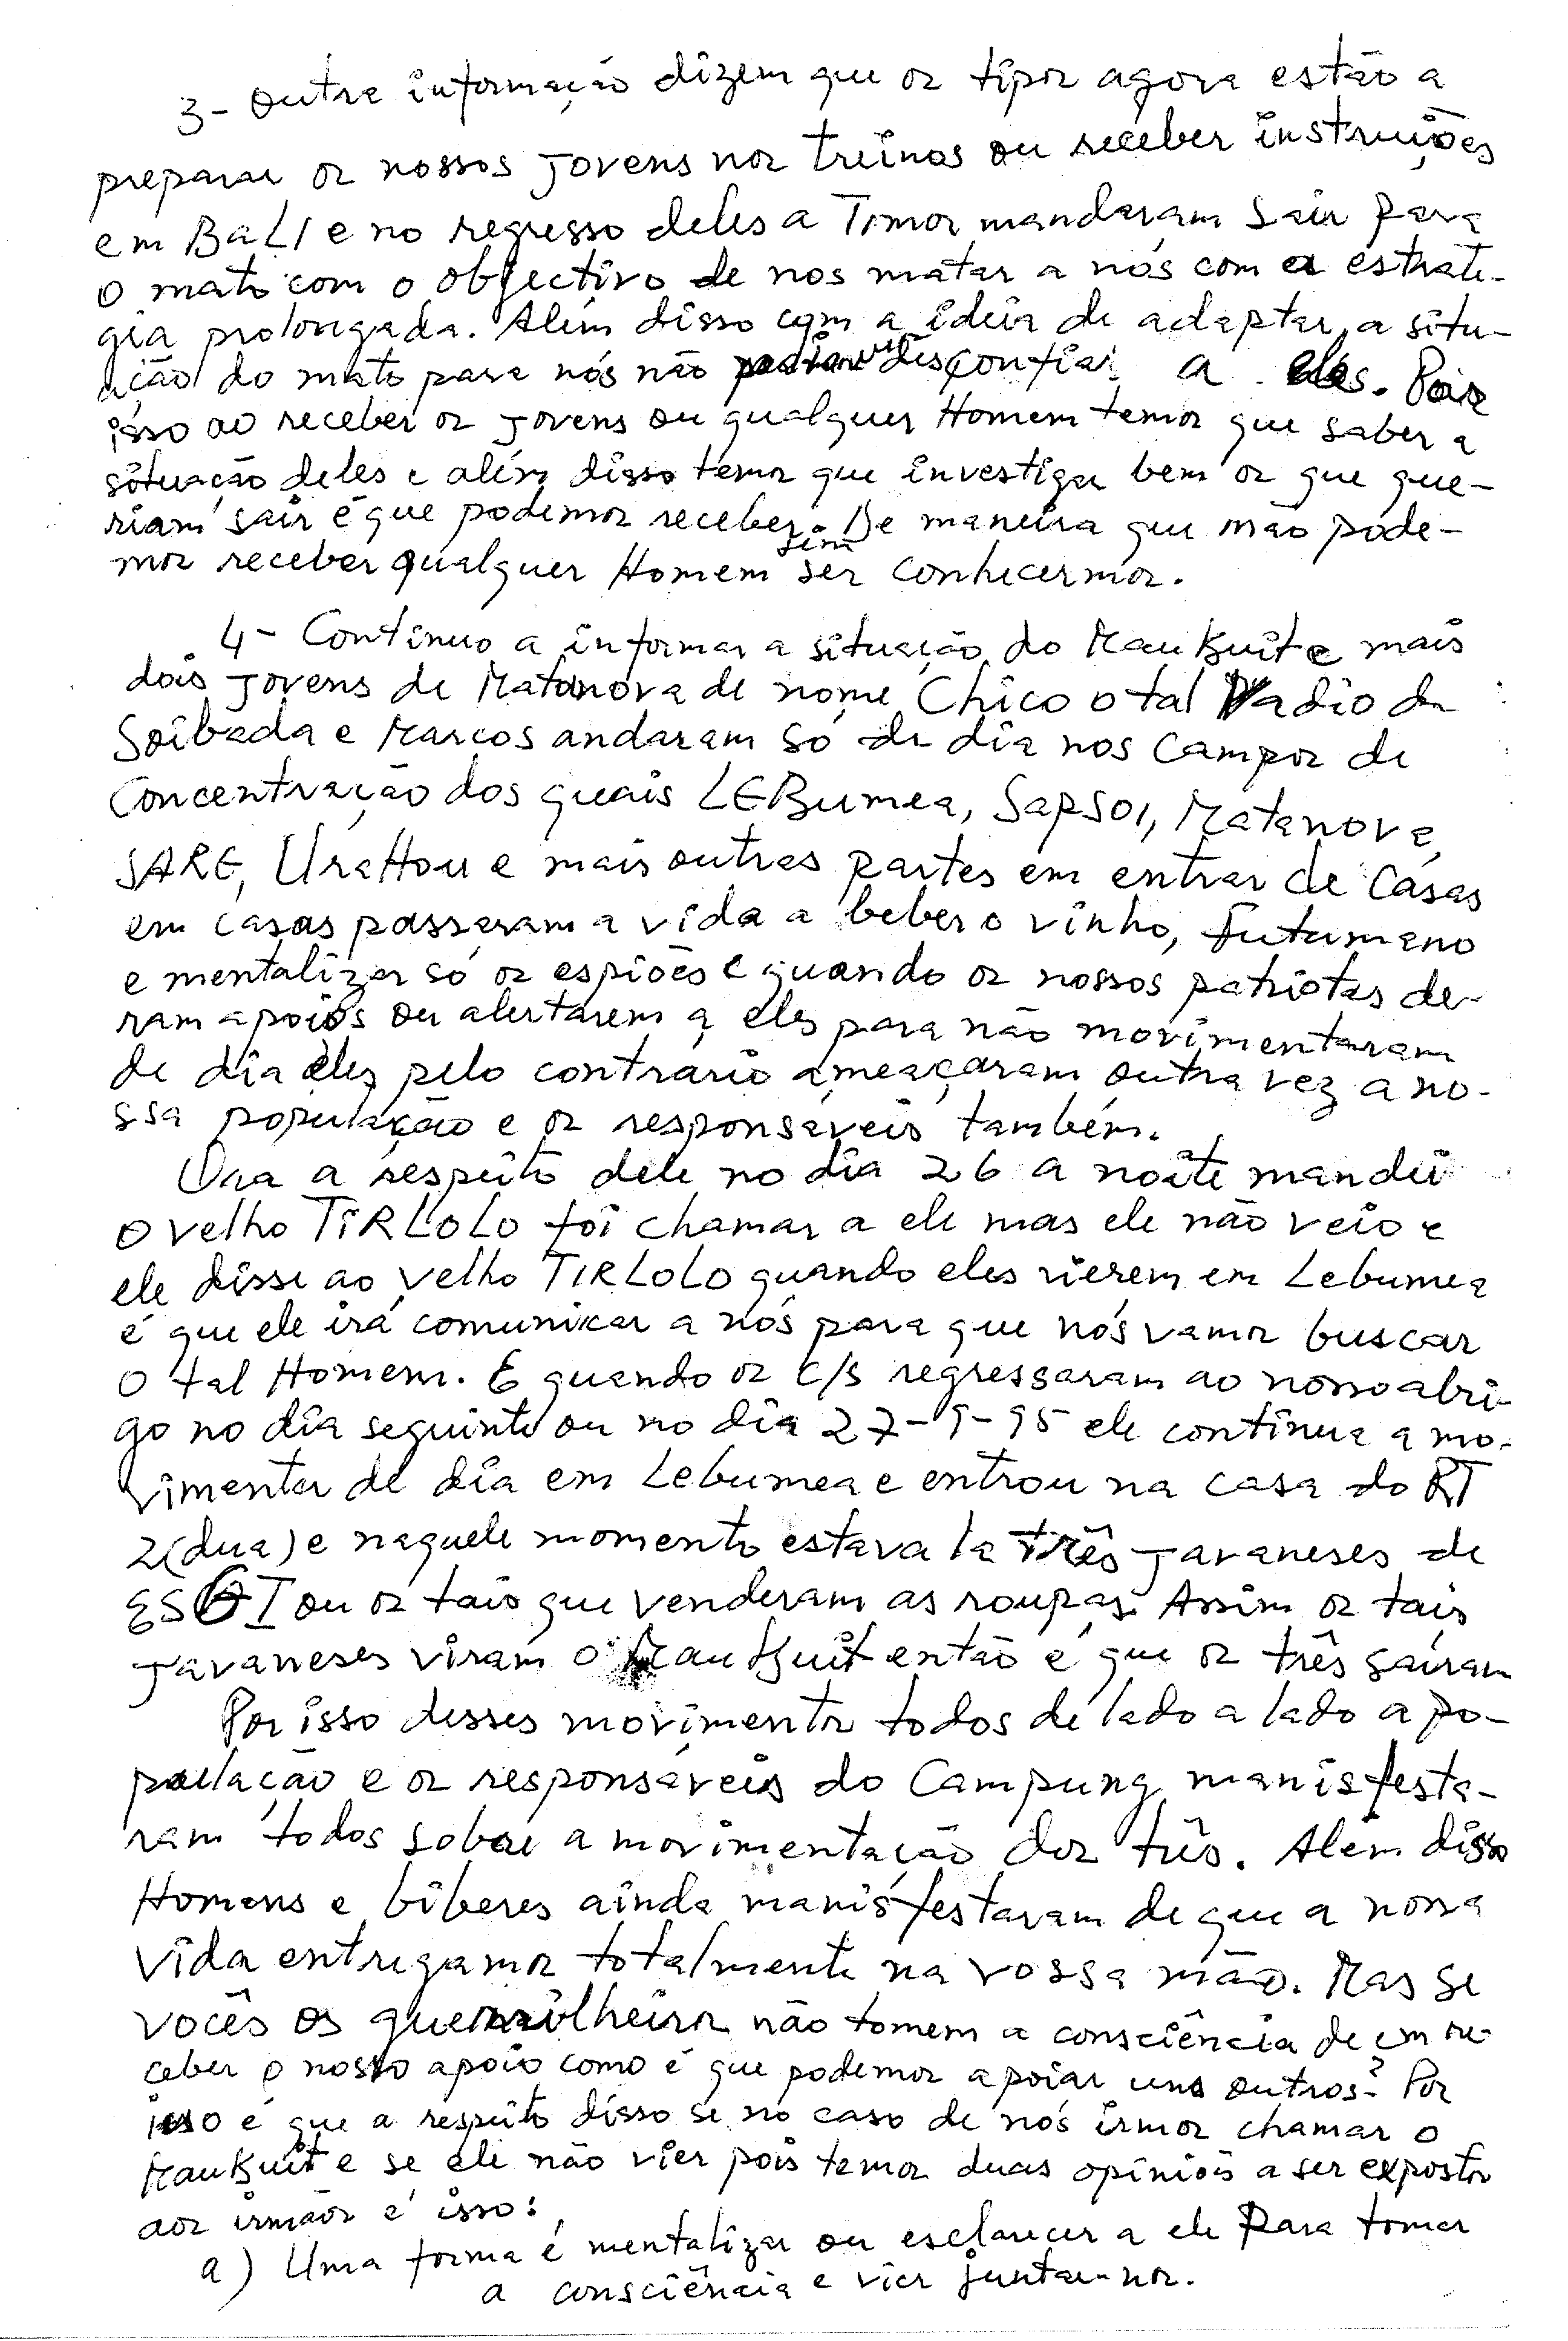 3- Outra informação dizem que os tipos agora estão a
preparar os nossos jovens nos treinos ou receber instruições
em BaLI e no regresso deles a Timor mandaram sair para
o mato com o objectivo de nos matar a nós com a estraté-
gia prolongada. Além disso com a ideia de adaptar a situ-
ação do mato para nós não desconfiar a eles. Por
isso ao receber os jovens ou qualquer Homem temos que saber a
situação deles e além disso temos que investigar bem os que que-
riam sair é que podemos receber. De maneira que não pode-
mos receber qualquer Homem sem ser conhecermos.
4- Continuo a informar a situação do MauBuite mais
dois jovens de Matanova de nome Chico o tal Vadio de
Soibada e Marcos andaram só de dia nos Campos de
Concentração dos quais LEBumea, SapSOI, Matanova,
SARE, UraHou e mais outras partes em entrar de Casas
em casas passaram a vida a beber o vinho, futumano
e mentalizar só os espiões e quando os nossos patriotas de-
ram apoios ou alertarem a eles para não movimentaram
de dia eles pelo contrário ameaçaram outra vez a no-
ssa população e os responsáveis também.
Ora a respeito dele no dia 26 a noite mandei
o velho TiRLOLO foi chamar a ele mas ele não veio e
ele disse ao velho TIRLOLO quando eles vierem em Lebumea
é que ele irá comunicar a nós para que nós vamos buscar
o tal Homem. E quando os c/s regressaram ao nosso abri-
go no dia seguinte ou no dia 27-9-95 ele continua a mo-
vimentar de dia em Lebumea e entrou na casa do RT
2(dua) e naquele momento estava la três javaneses de
ou os tais que venderam as roupas. Assim os tais
javaneses viram o MauBuit então é que os três sairam
Por isso desses movimentos todos de lado a lado a po-
pulação e os responsáveis do Campung manisfesta-
ram todos sobre a movimentação dos três. Além disso
Homens e biberes ainda manisfestaram de que a nossa
vida entregamos totalmente na vossa mão. Mas se
vocês os guerrilheiros não tomem a consciência de em re-
ceber o nosso apoio como é que podemos apoiar uns outros? Por
isso é que a respeito disso se no caso de nós irmos chamar o
MauBuit e se ele não vier pois temos duas opiniões a ser expostos
aos irmãos é isso:
a) Uma forma é mentalizar ou esclarecer a ele Para tomar
a consciência e vier juntar-nos.